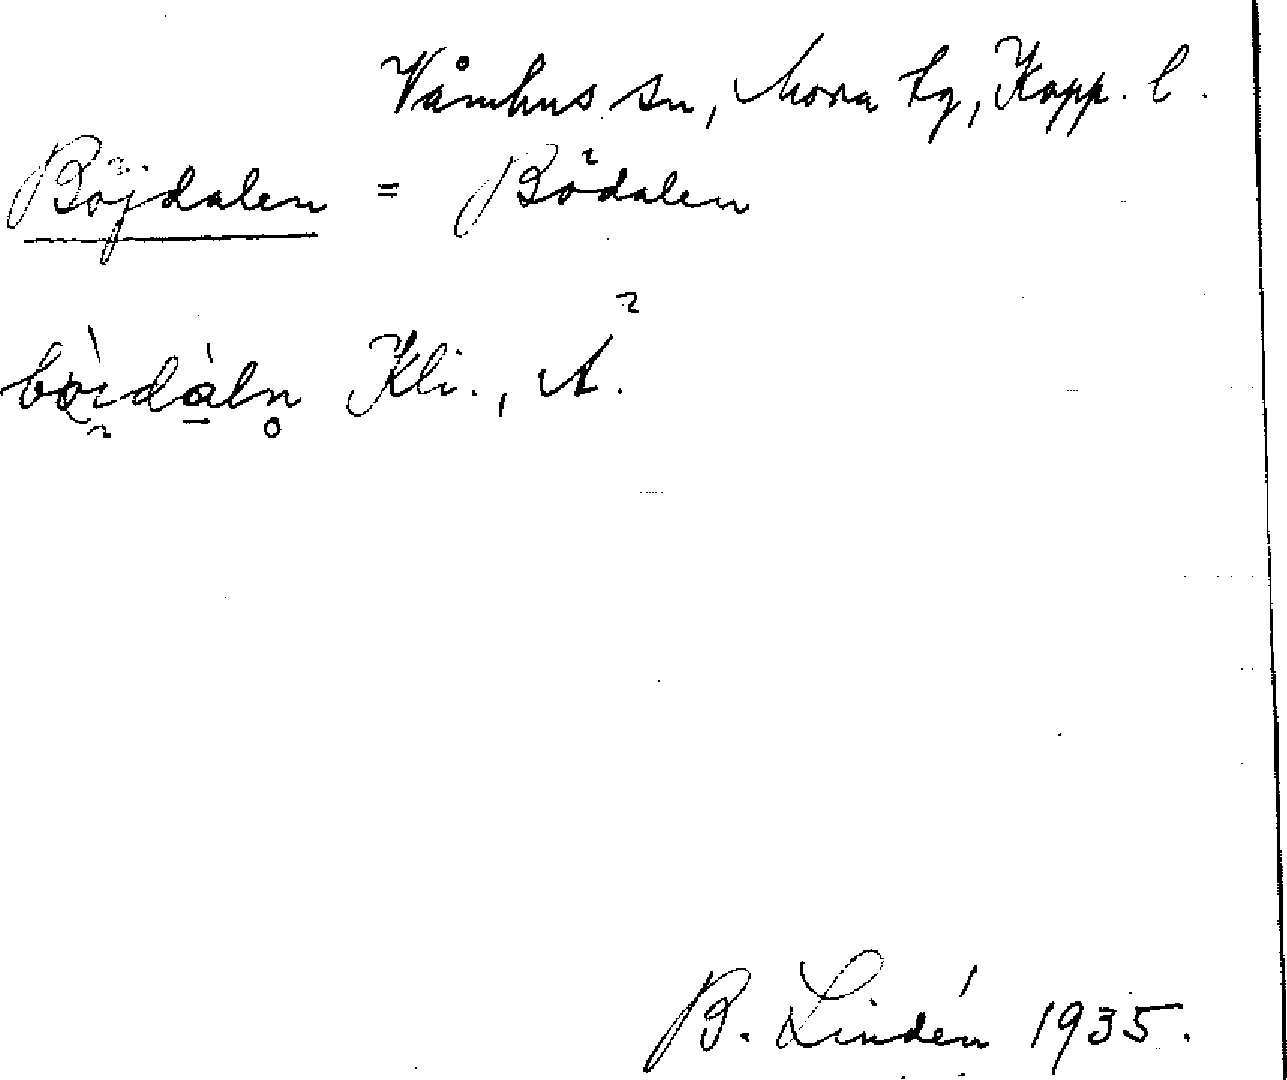 Våmhus sn, Mora tg, Kopp. l.
Böjdalen = Bödalen
Kli., Å.
B. Lindén 1935.